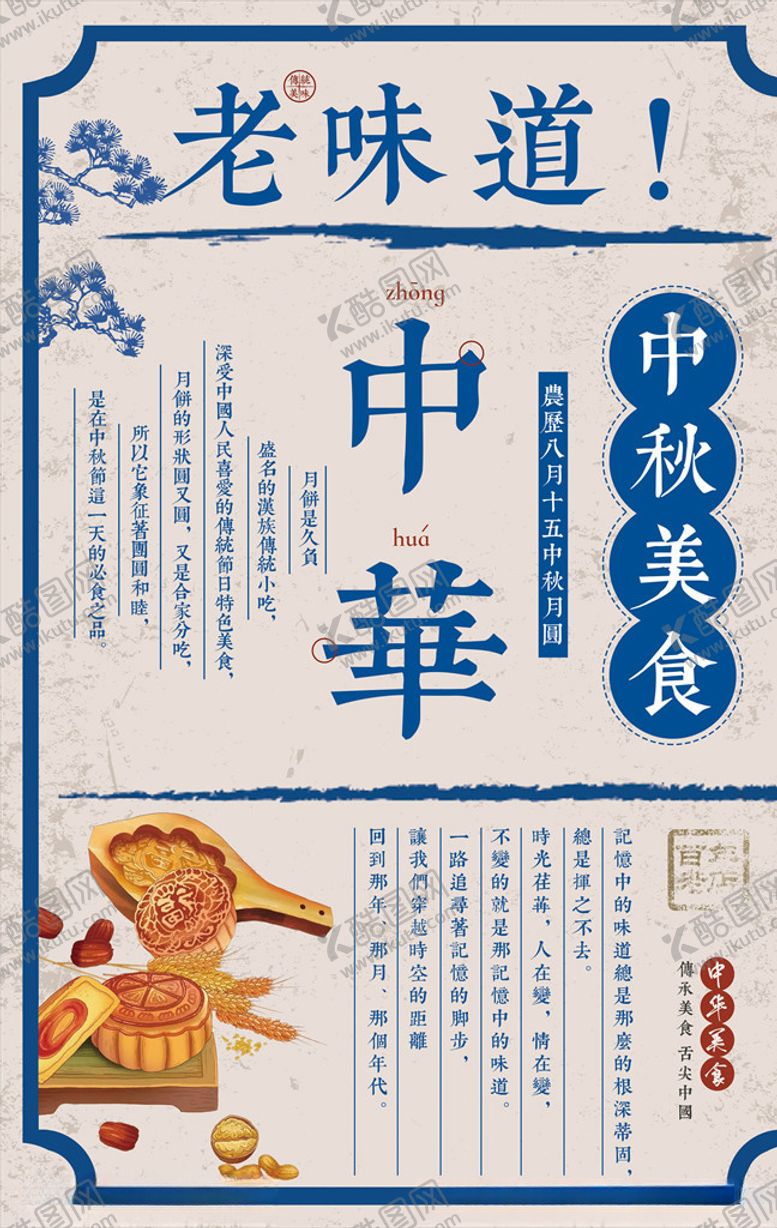 老味道！
傳統
美味
中秋美食
農歷八月十五中秋月圓
zhōng
中
huá
華
月餅是久負
盛名的漢族傳統小吃，
深受中國人民喜愛的傳統節日特色美食，
月餅的形狀圓又圓，又是合家分吃，
所以它象征著團圓和睦，
是在中秋節這一天的必食之品。
百年
老店
中华美食
傳承美食 舌尖中國
記憶中的味道總是那麼的根深蒂固，
總是揮之不去。
時光荏苒，人在變，情在變，
不變的就是那記憶中的味道。
一路追尋著記憶的脚步，
讓我們穿越時空的距離
回到那年、那月、那個年代。
酷图网
www.ikutu.com